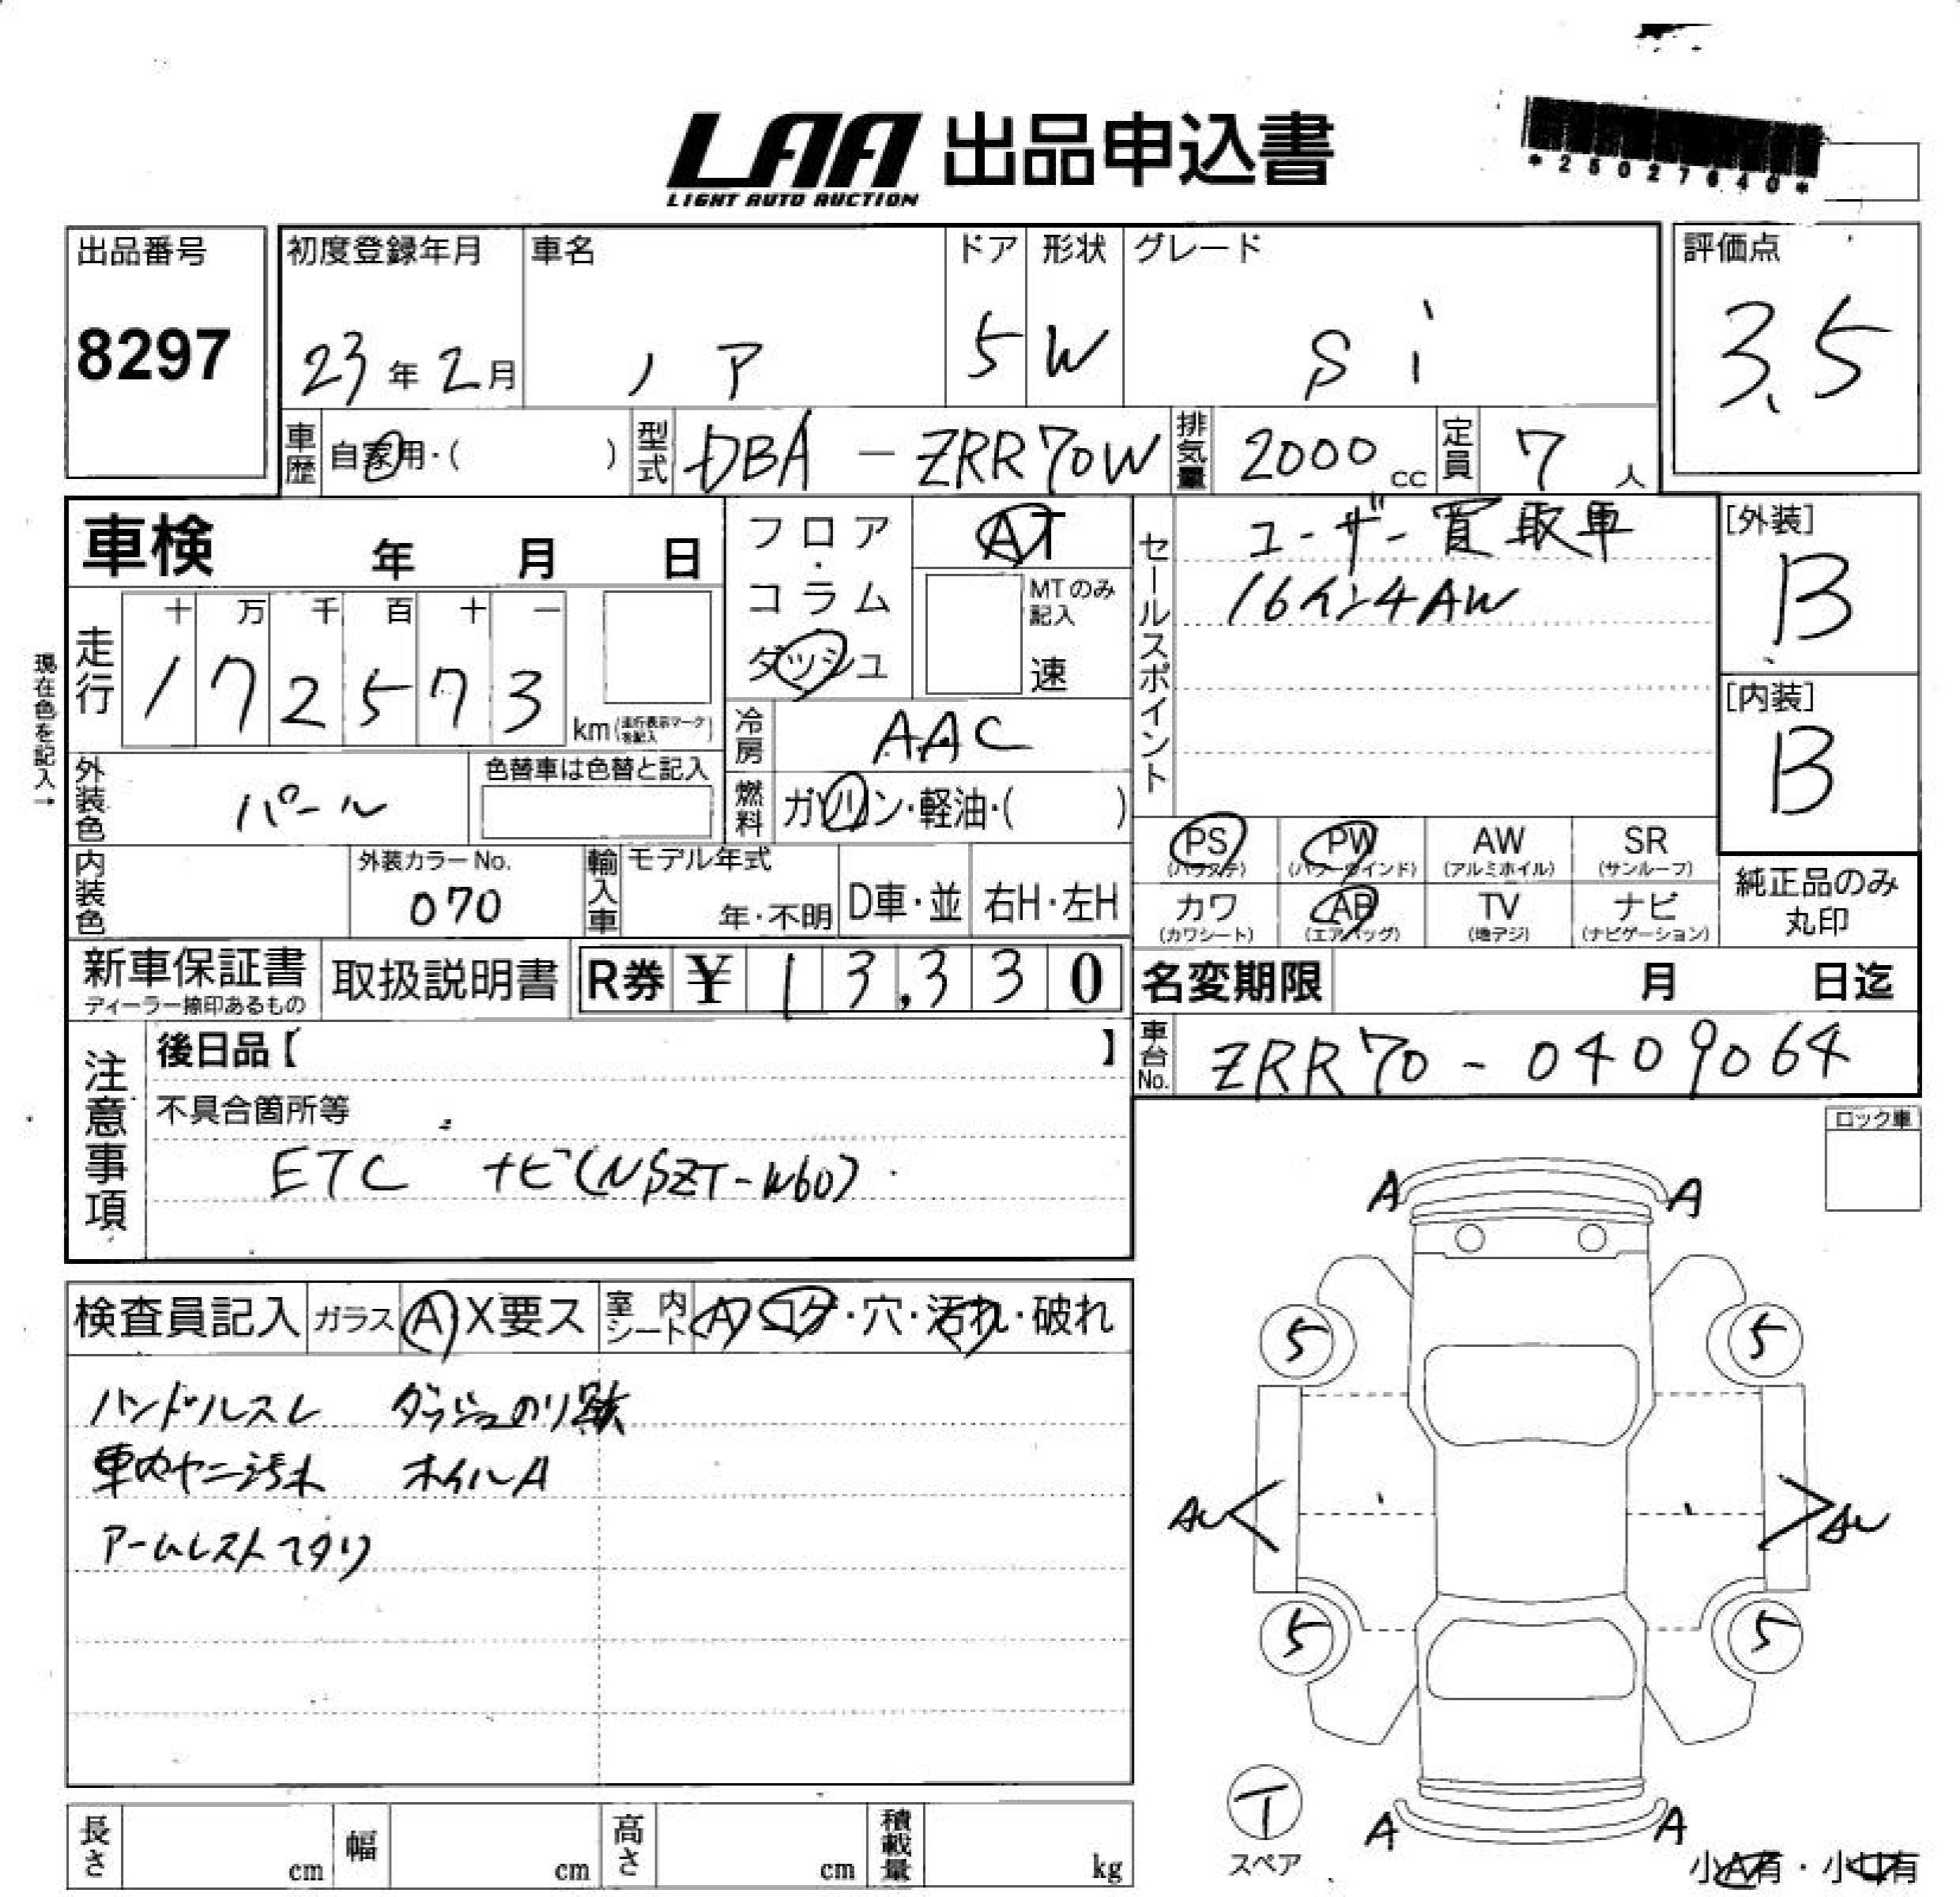 LAA 出品申込書
LIGHT AUTO AUCTION
*25027640*
出品番号
8297
初度登録年月
23年2月
車名
ノア
ドア
5
形状
W
グレード
Si
評価点
3.5
車歴 自家用・( )
型式 DBA-ZRR70W
排気量 2000cc
定員 7人
車検 年 月 日
フロア・コラム
ダッシュ
AT
MTのみ記入
速
セールスポイント
ユーザー買取車
16インチAW
[外装]
B
[内装]
B
現在色を記入→
走行
十 万 千 百 十 一
1 7 2 5 7 3
km(走行表示マークを記入)
冷房 AAC
燃料 ガソリン・軽油・( )
外装色 パール
色替車は色替と記入
内装色
外装カラーNo.
070
輸入車
モデル年式
年・不明
D車・並
右H・左H
PS (パワステ)
PW (パワーウインド)
AW (アルミホイル)
SR (サンルーフ)
カワ (カワシート)
AB (エアバッグ)
TV (地デジ)
ナビ (ナビゲーション)
純正品のみ
丸印
新車保証書
ディーラー捺印あるもの
取扱説明書
R券 ¥13,330
名変期限 月 日迄
車台No. ZRR70-0409064
注意事項
後日品【 】
不具合箇所等
ETC ナビ(NSZT-W60)
ロック車
検査員記入
ガラス A X要ス
室内シート A コゲ・穴・汚れ・破れ
ハンドルスレ ダッシュのり跡
車内ヤニ汚れ ホイルA
アームレストヘタリ
A A
5 5
AU AU
5 5
T
スペア
A A
小A有・小U有
長さ cm
幅 cm
高さ cm
積載量 kg